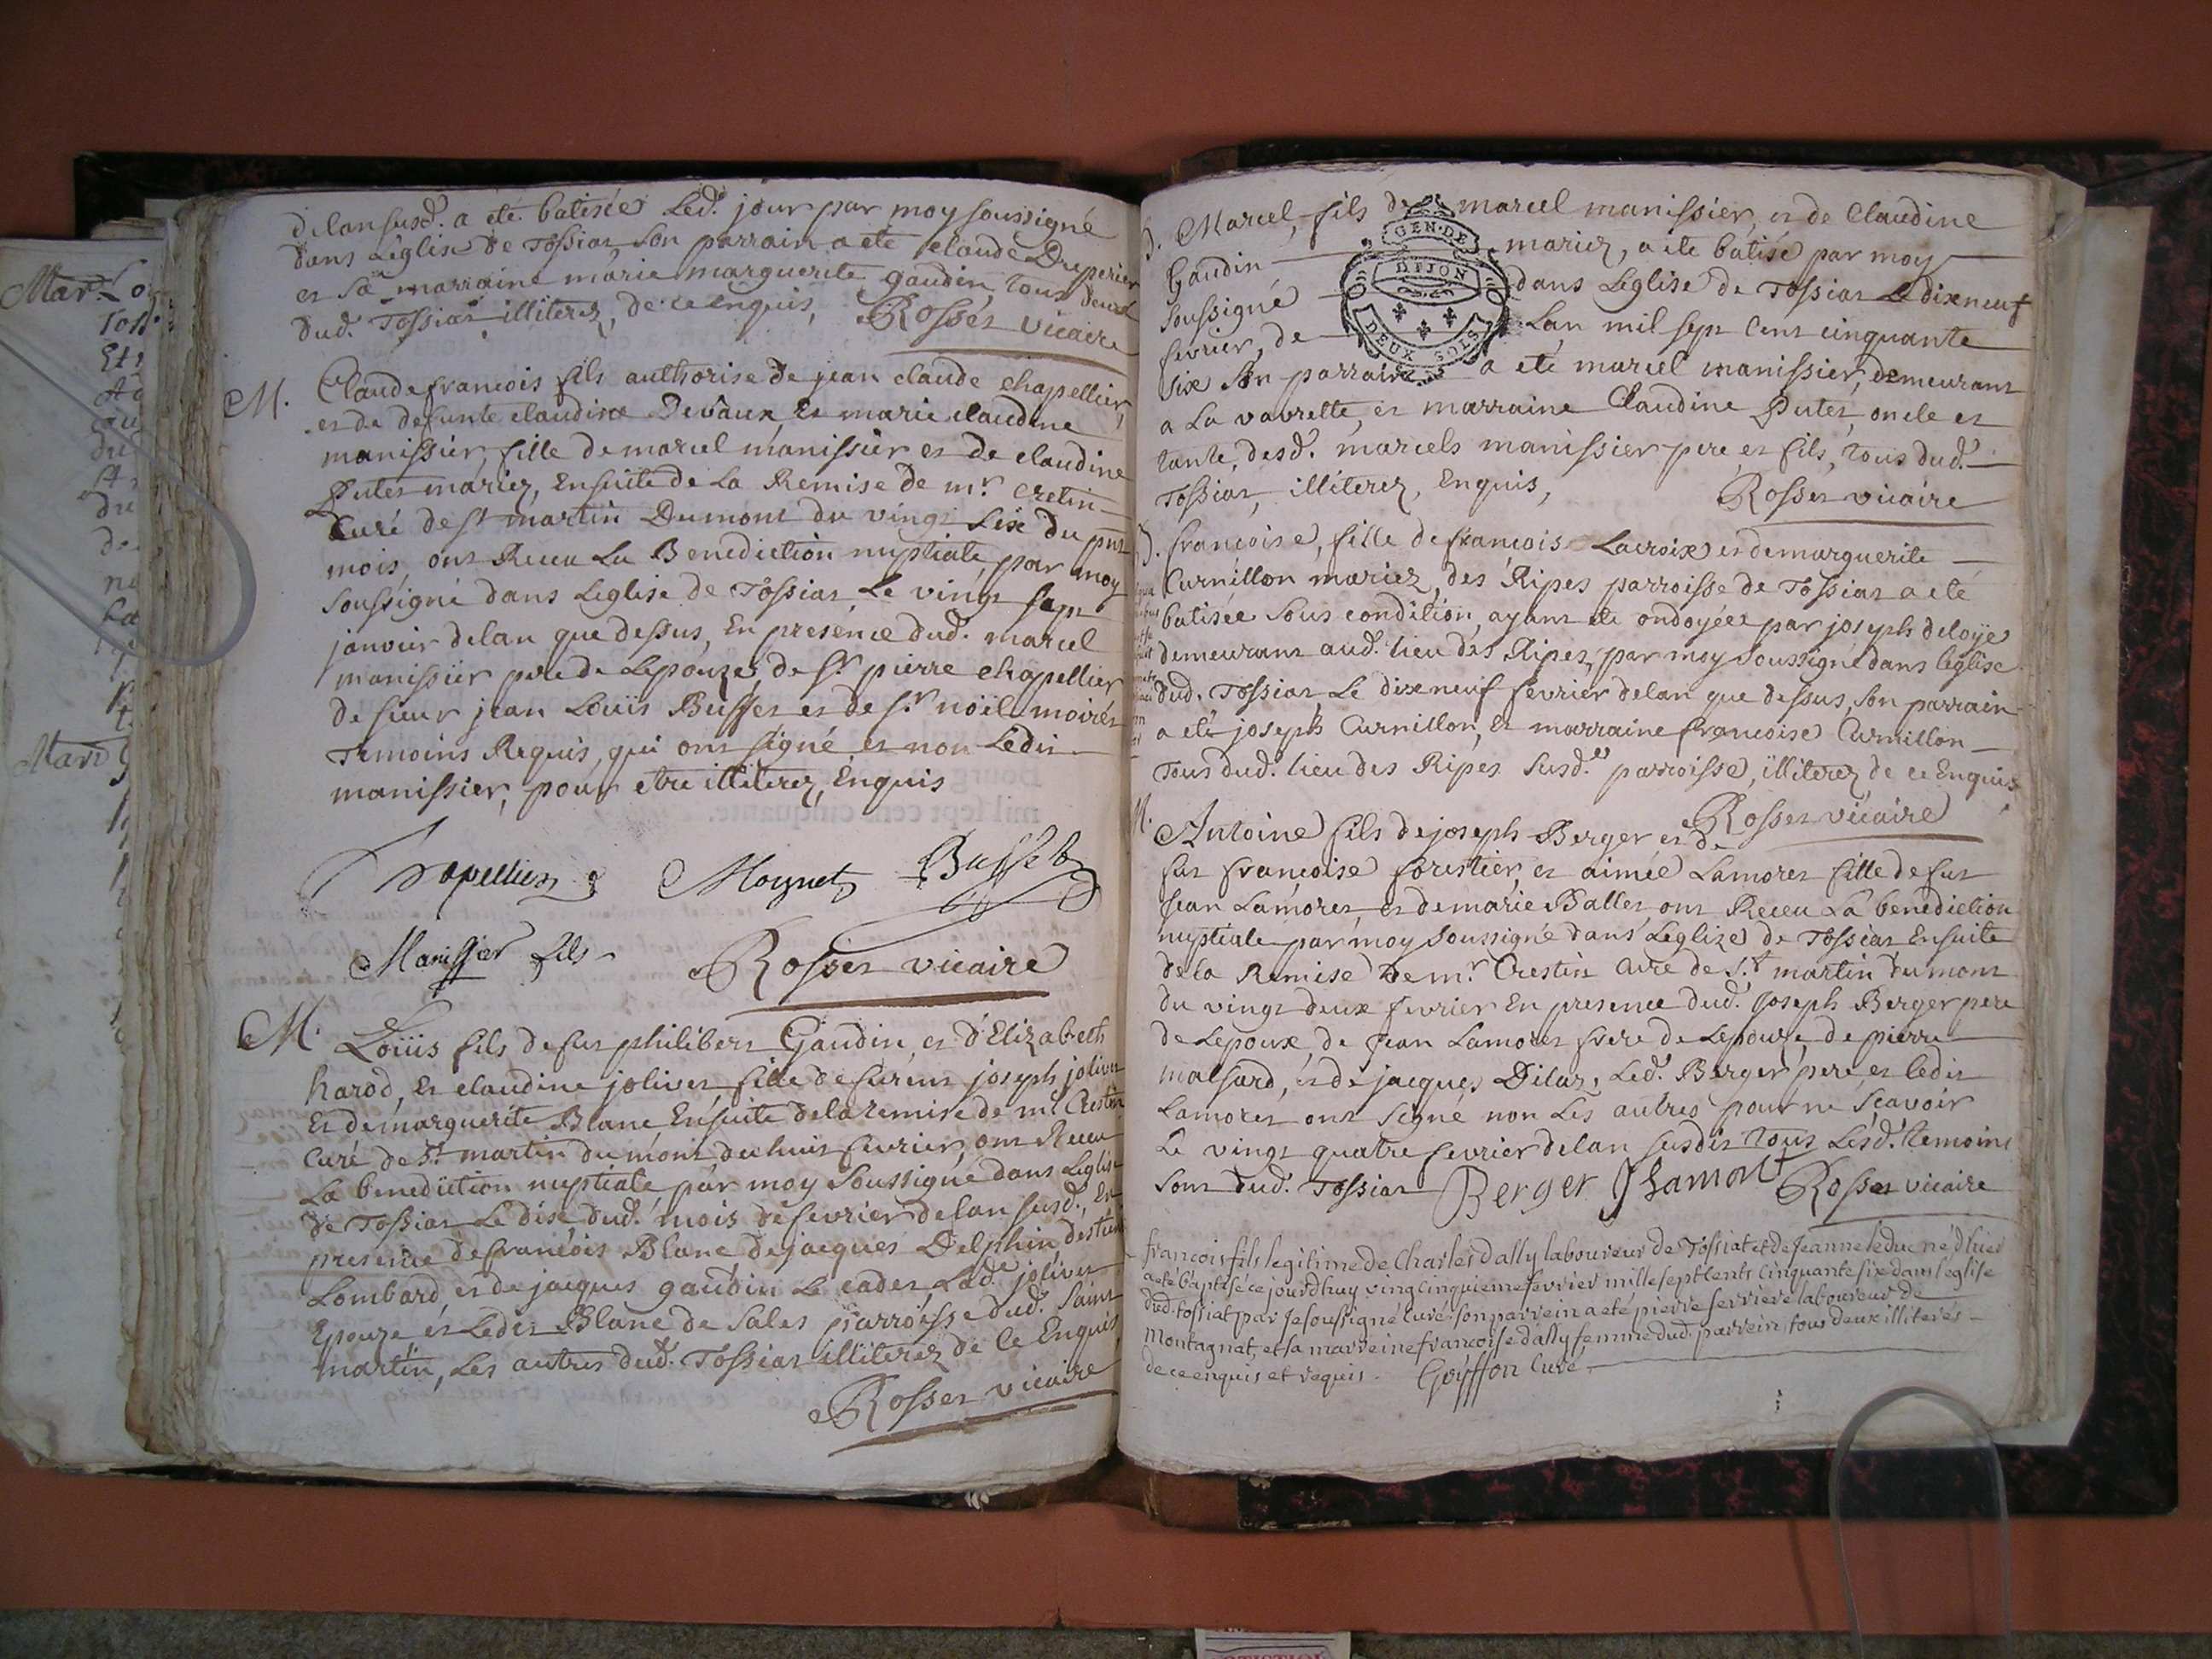 delansusd. a eté batisée Led. jour par moy soussigné
dans Leglise de Tossiat, son parrain a eté claude Dreperier
et sa marraine marie marguerite gaudin, tous deux
dud. Tossiat illiterez, de ce Enquis, Rosset vicaire
M. Claude francois fils authorise de jean claude chapellier,
et de defunte claudine Devaux, Et marie claudine
manissier, fille de marcel manissier et de claudine
Putet mariez, Ensuite de La Remise de mr. cretin
Curé de st martin Dumont du vingt six du pnt
mois, ont Receu La Benediction nuptiale, par moy
soussigné dans Leglise de Tossiat, Le vingt sept
janvier delan que dessus, En presence dud. marcel
manissier pere de Lepouze, de sr. pierre chapellier
de sieur jean Louïs Buffet et de sr. noïel moirét
Temoins Requis, qui ont signé et non Ledit
manissier, pour etre illiterez, Enquis
Chapellier Moynet Buffet
Manissier fils Rosset vicaire
M. Loüis fils de fut philibert Gaudin, et d'Elizabeth
harod, Et claudine jolivet, fille de furent joseph jolivet
Et de marguerite Blanc, Ensuite dela remise de mr. Crestin
Curé de st. martin du mont du huit fevrier, ont Receu
La benediction nuptiale, par moy Soussigné dans Leglise
de Tossiat Le dixe dud. mois de fevrier delan susd., En
presence de francois Blanc de jacques Delphin,
Lombard, et de jacques gaudin Le cadet, Lade. jolivet
Epouze et Ledit Blanc de Sales parroisse dud. saint
martin, Les autres dud. Tossiat illiterez de ce Enquis
Rosset vicaire
Marcel, fils de marcel manissier, et de Claudine
Gaudin mariez, a ete batisé par moy
soussigné dans Leglise de Tossiat Le dixneuf
fevrier, de Lan mil sept cent cinquante
six son parrain a eté marcel manissier, demeurant
a La vavrette, et marraine Claudine Putet, oncle et
tante, desd. marcels manissier pere et fils, tous dud.
Tossiat, illiterez, Enquis, Rosset vicaire
GEN. DE
DIJON
DEUX SOLS
francoise, fille de francois Lacroix et de marguerite
Curnillon mariez, des Ripes parroisse de Tossiat a eté
batisée sous condition, ayant ete ondoyée par joseph deloÿe
demeurant aud. lieu des Ripes, par moy soussigné dans leglise
dud. Tossiat, Le dixneuf fevrier delan que dessus, son parrain
a eté joseph Curnillon, Et marraine francoise Curnillon
Tous dud. lieu des Ripes susd. parroisse, illiterez de ce Enquis
Rosset vicaire
M. Antoine fils de joseph Berger et de
fut francoise forestier, et aimée Lamoret fille de fut
jean Lamoret, et de marie Ballet, ont Receu La benediction
nuptiale par moy Soussigné dans Leglize de Tossiat Ensuite
de la Remise de mr. Crestin Curé de S.t martin du mont
du vingt deux fevrier En presence dud. Joseph Berger pere
de Lepoux, de jean Lamoret frere de Lepouse, de pierre
malfard, et de jacques Dilas, Led. Berger pere, et ledit
Lamoret ont signé non Les autres pour ne Sçavoir
Le vingt quatre fevrier delan susdit tous Lesd. temoins
sont dud. Tossiat Berger J Lamoret Rosset vicaire
francois fils legitime de Charles dally laboureur de Tossiat et de Jeanne leduc né d'hier
a eté baptisé ce jourdhuy vingcinquieme fevrier mille sept cents Cinquante six dans leglise
dud. tossiat par je soussigné curé. son parrein a eté pierre ferriere laboureur de
Montagnat, et sa marreine francoise dally femme dud. parrein, tous deux illiterés
de ce enquis et requis. Goÿffon Curé